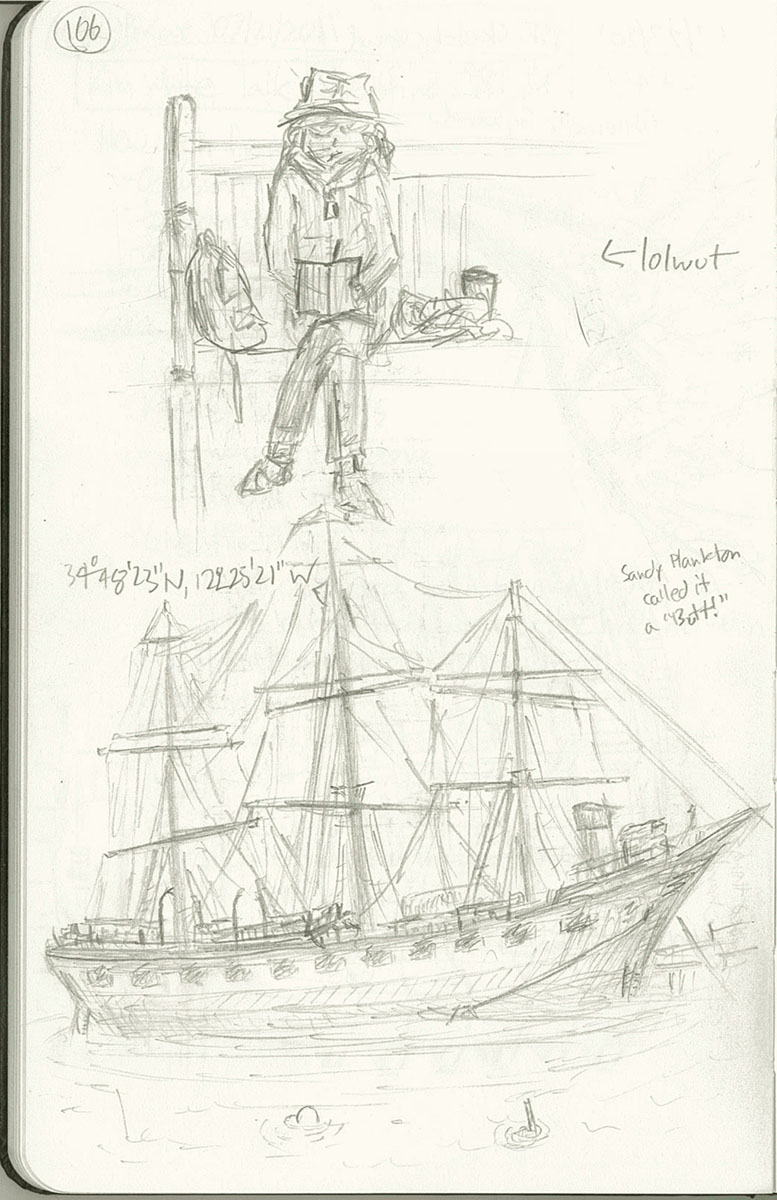 106
←lolwut
34°48'23"N, 122°25'21"W
Sandy Plankton
called it
a "Butt!"